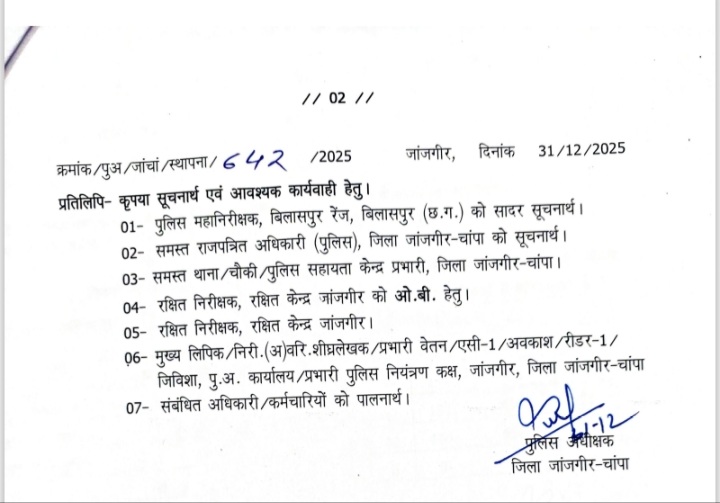 // 02 //
क्रमांक/पुअ/जांचां/स्थापना/ 642 /2025 जांजगीर, दिनांक 31/12/2025
प्रतिलिपि- कृपया सूचनार्थ एवं आवश्यक कार्यवाही हेतु।
01- पुलिस महानिरीक्षक, बिलासपुर रेंज, बिलासपुर (छ.ग.) को सादर सूचनार्थ।
02- समस्त राजपत्रित अधिकारी (पुलिस), जिला जांजगीर-चांपा को सूचनार्थ।
03- समस्त थाना/चौकी/पुलिस सहायता केन्द्र प्रभारी, जिला जांजगीर-चांपा।
04- रक्षित निरीक्षक, रक्षित केन्द्र जांजगीर को ओ.बी. हेतु।
05- रक्षित निरीक्षक, रक्षित केन्द्र जांजगीर।
06- मुख्य लिपिक/निरी.(अ)वरि.शीघ्रलेखक/प्रभारी वेतन/एसी-1/अवकाश/रीडर-1/
जिविशा, पु.अ. कार्यालय/प्रभारी पुलिस नियंत्रण कक्ष, जांजगीर, जिला जांजगीर-चांपा
07- संबंधित अधिकारी/कर्मचारियों को पालनार्थ।
पुलिस अधीक्षक
जिला जांजगीर-चांपा